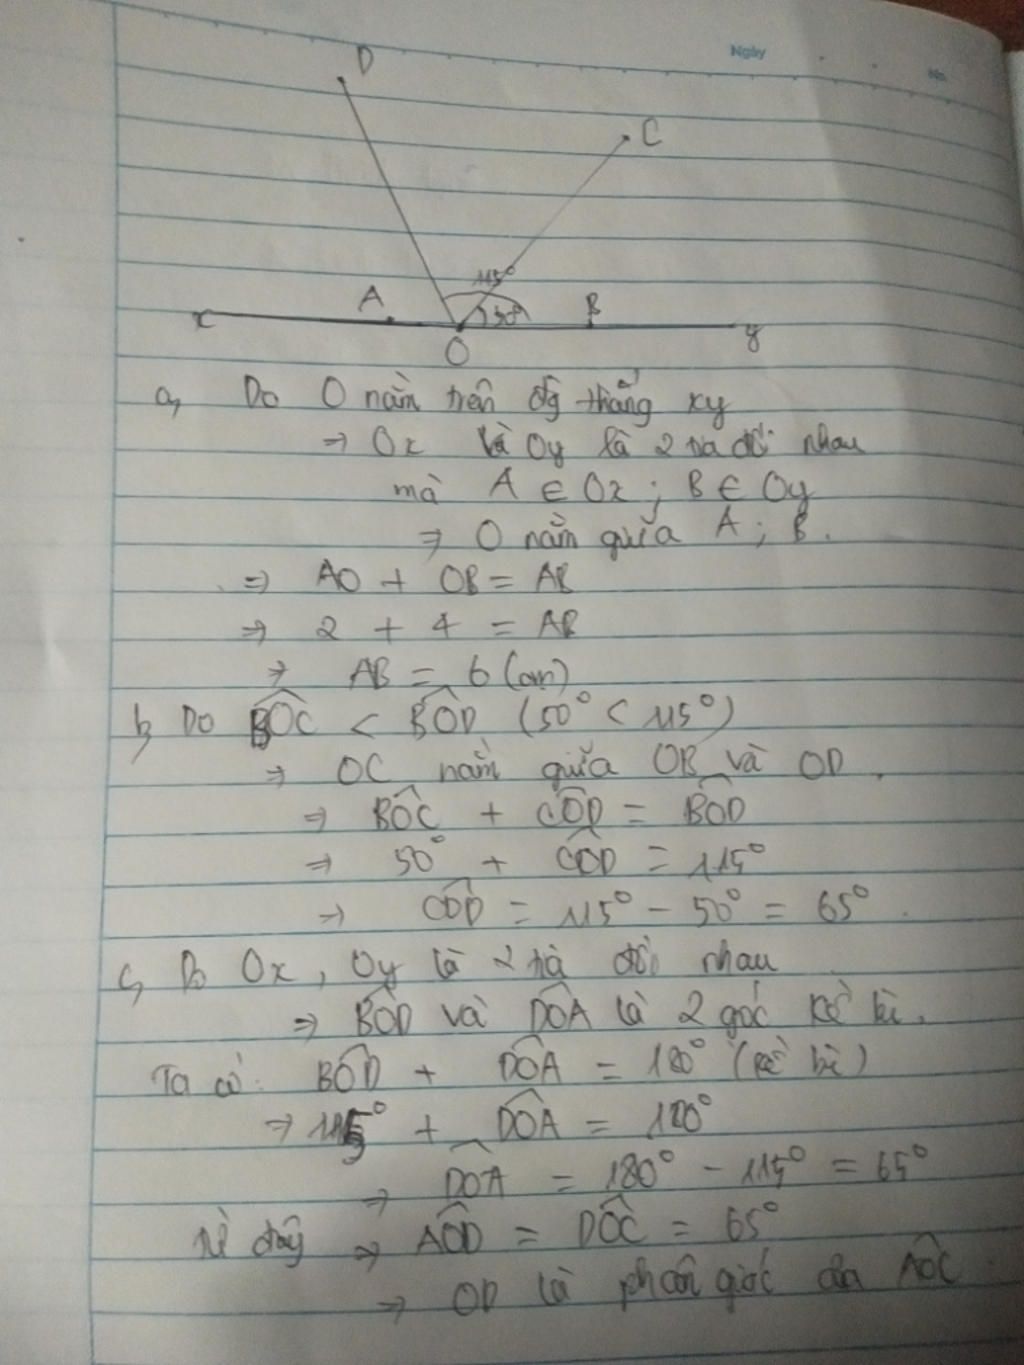 Ngày
No.
D
C
115°
A
50°
B
x
O
y
a, Do O nằm trên đg thẳng xy
⇒ Ox và Oy là 2 tia đối nhau
mà A ∈ Ox ; B ∈ Oy
⇒ O nằm giữa A ; B.
⇒ AO + OB = AB
⇒ 2 + 4 = AB
⇒ AB = 6 (cm)
b, Do BOC^ < BOD^ (50° < 115°)
⇒ OC nằm giữa OB và OD.
⇒ BOC^ + COD^ = BOD^
⇒ 50° + COD^ = 115°
⇒ COD^ = 115° - 50° = 65°.
c, Do Ox, Oy là 2 tia đối nhau
⇒ BOD^ và DOA^ là 2 góc kề bù.
Ta có: BOD^ + DOA^ = 180° (kề bù)
⇒ 115° + DOA^ = 180°
⇒ DOA^ = 180° - 115° = 65°
Từ đây ⇒ AOD^ = DOC^ = 65°
⇒ OD là phân giác của AOC^